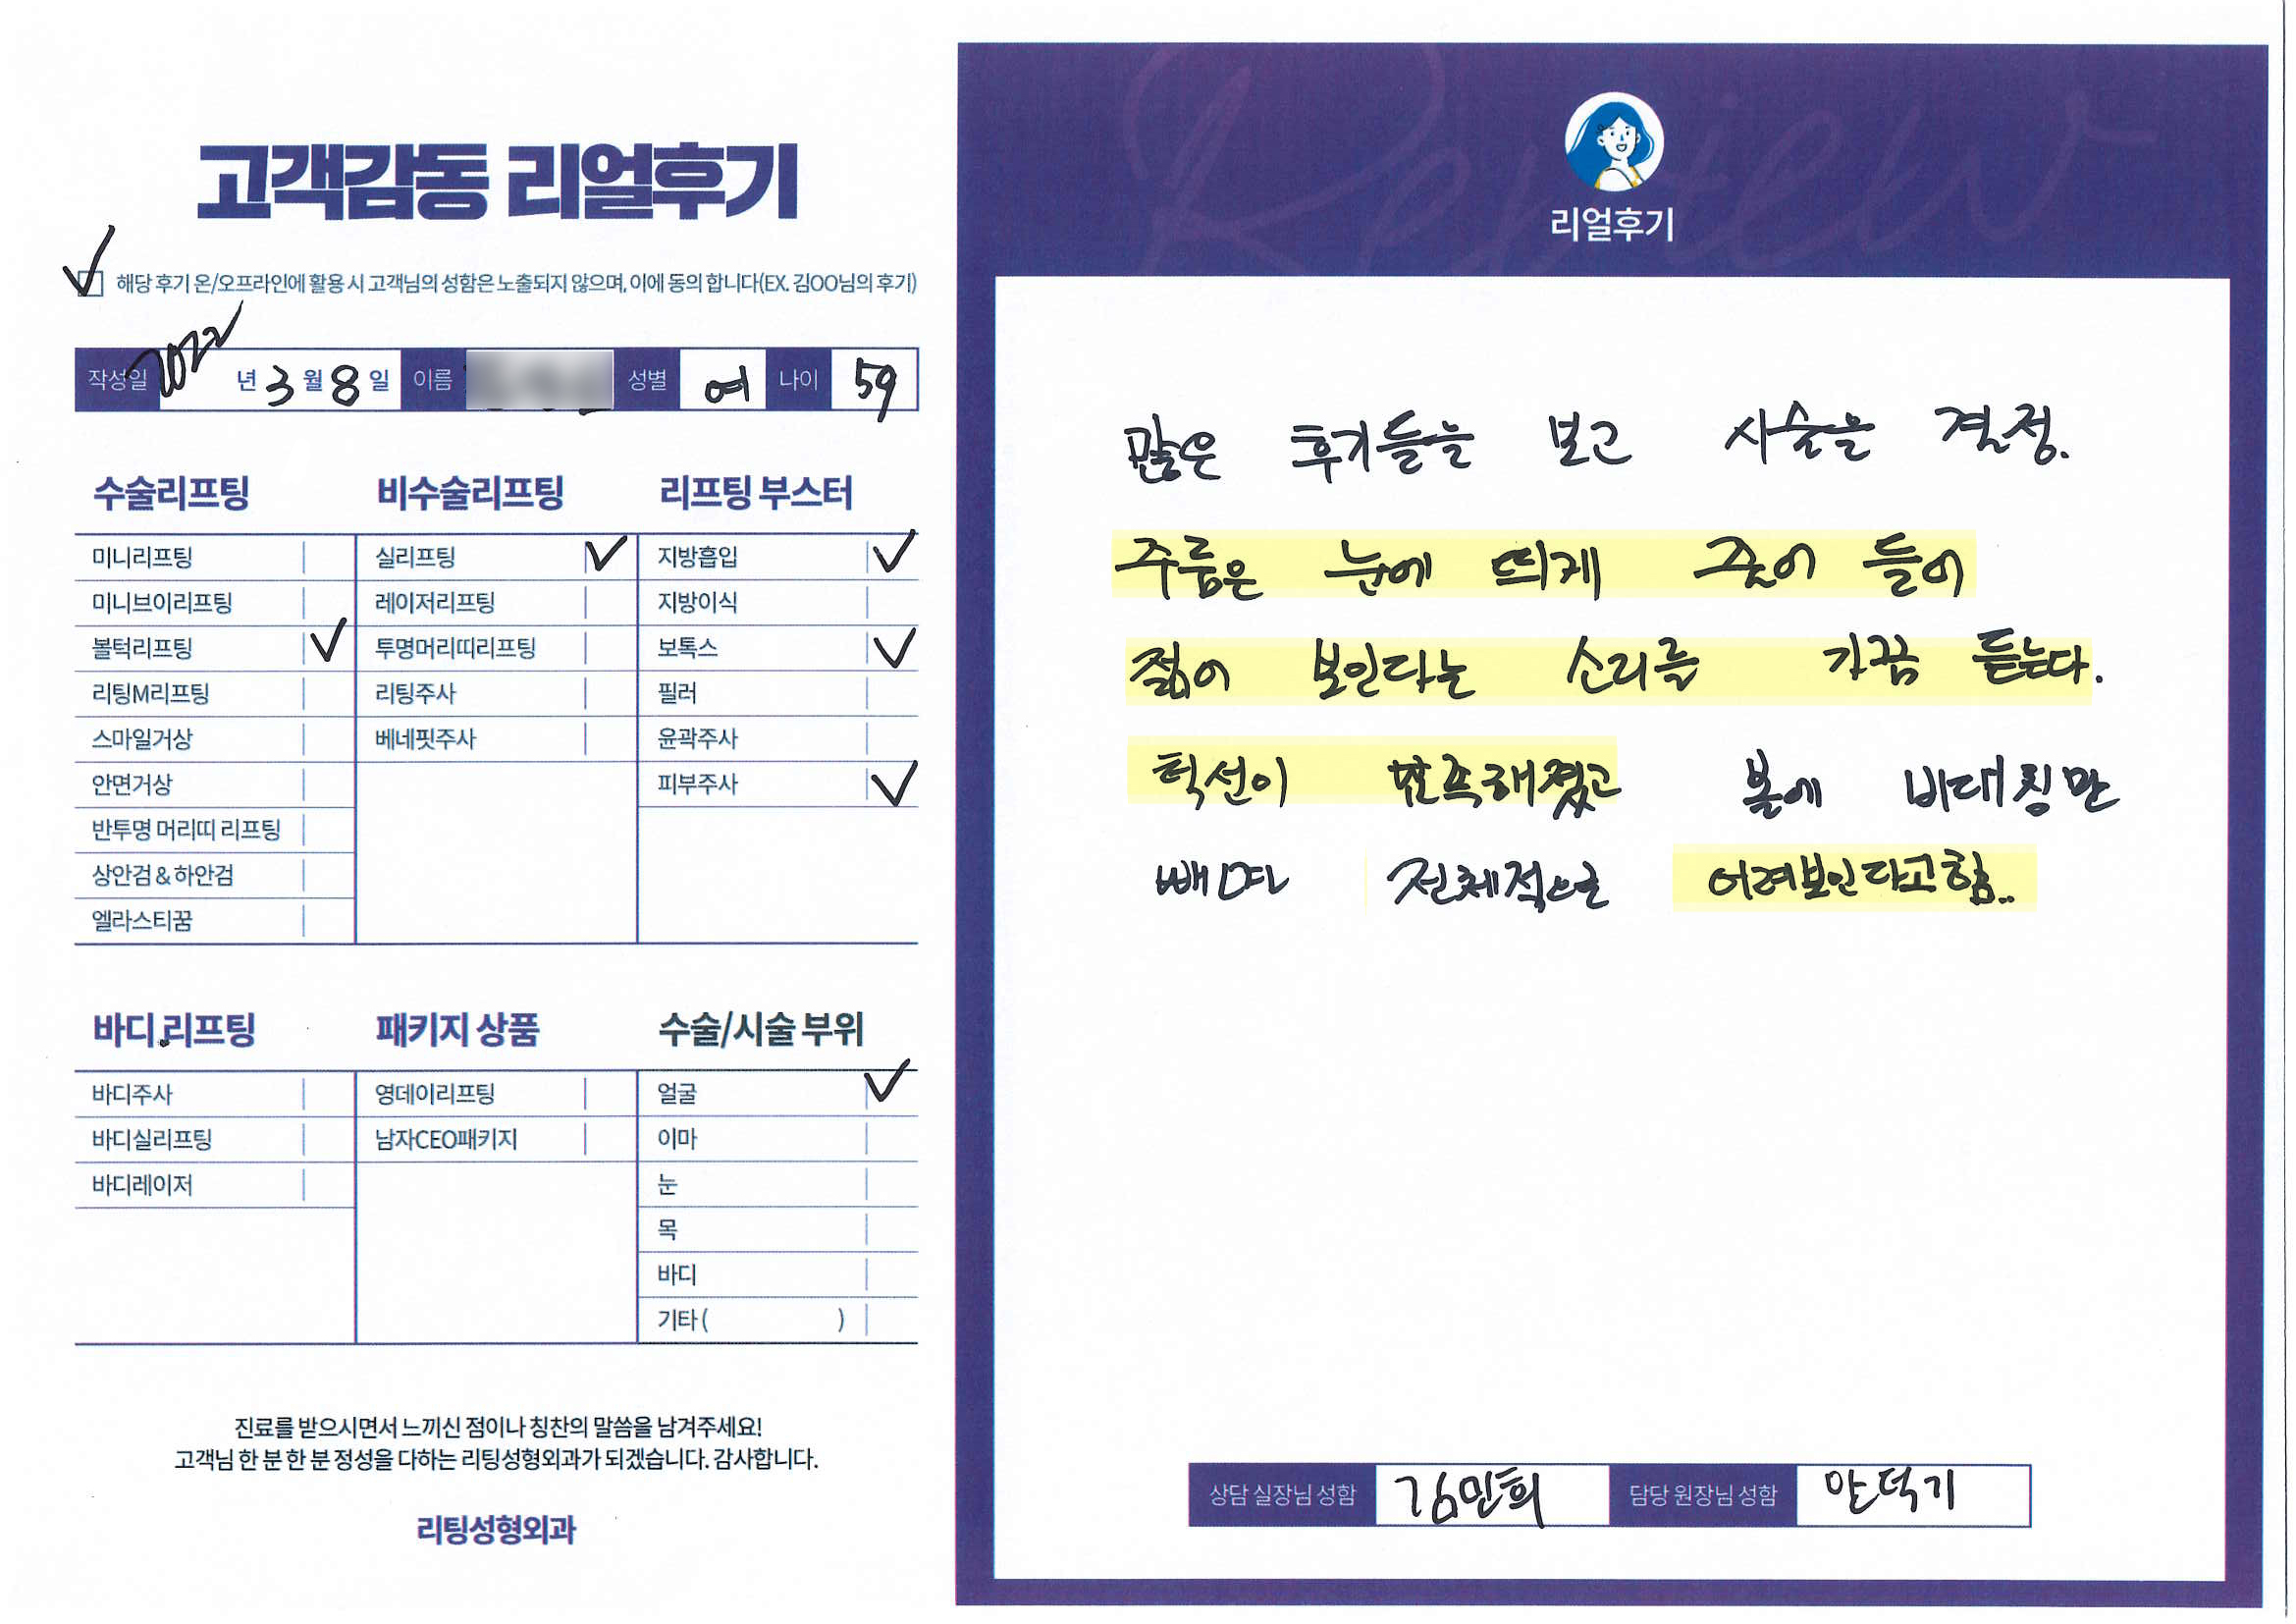 고객감동 리얼후기
✓ 해당 후기 온/오프라인에 활용 시 고객님의 성함은 노출되지 않으며, 이에 동의 합니다(EX. 김OO님의 후기)
작성일 2022 년 3 월 8 일 이름 성별 여 나이 59
수술리프팅 비수술리프팅 리프팅 부스터
미니리프팅 실리프팅 ✓ 지방흡입 ✓
미니브이리프팅 레이저리프팅 지방이식
볼턱리프팅 ✓ 투명머리띠리프팅 보톡스 ✓
리팅M리프팅 리팅주사 필러
스마일거상 베네핏주사 윤곽주사
안면거상 피부주사 ✓
반투명 머리띠 리프팅
상안검 & 하안검
엘라스티꿈
바디리프팅 패키지 상품 수술/시술 부위
바디주사 영데이리프팅 얼굴 ✓
바디실리프팅 남자CEO패키지 이마
바디레이저 눈
목
바디
기타 ( )
진료를 받으시면서 느끼신 점이나 칭찬의 말씀을 남겨주세요!
고객님 한 분 한 분 정성을 다하는 리팅성형외과가 되겠습니다. 감사합니다.
리팅성형외과
Review
리얼후기
많은 후기들을 보고 시술을 결정.
주름은 눈에 띄게 줄어 들어
젊어 보인다는 소리를 가끔 듣는다.
턱선이 반듯해졌고 볼에 비대칭만
빼며 전체적으로 어려보인다고함..
상담 실장님 성함 김민희 담당 원장님 성함 안덕기